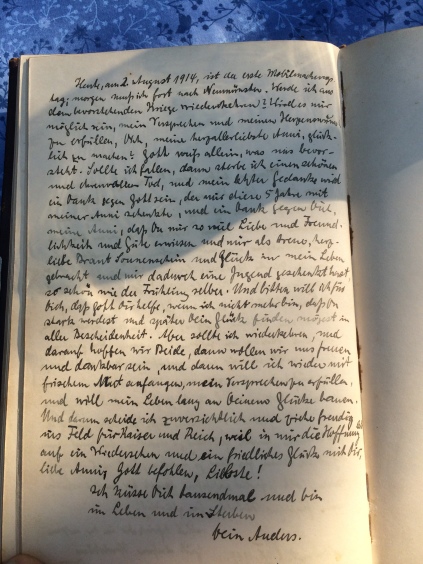 Heute, am 2. August 1914, ist der erste Mobilmachungs-
tag; morgen muß ich fort nach Neumünster. Werde ich aus
dem bevorstehenden Kriege wiederkehren? Wird es mir
möglich sein, mein Versprechen und meinen Herzenswunsch
zu erfüllen, Dich, meine herzallerliebste Anni, glück-
lich zu machen? Gott weiß allein, was uns bevor-
steht. Sollte ich fallen, dann sterbe ich einen schönen
und ehrenvollen Tod, und mein letzter Gedanke wird
ein Dank gegen Gott sein, der mir diese 5 Jahre mit
meiner Anni schenkte, und ein Dank gegen Dich,
meine Anni, daß Du mir so viel Liebe und Freund-
lichkeit und Güte erwiesen und mir als treue, herz-
liebe Braut Sonnenschein und Glück in mein Leben
gebracht und mir dadurch eine Jugend geschenkt hast
so schön wie der Frühling selber. Und bitten will ich für
Dich, daß Gott Dir helfe, wenn ich nicht mehr bin, daß Du
stark werdest und später Dein Glück finden mögest in
aller Bescheidenheit. Aber sollte ich wiederkehren, und
darauf hoffen wir Beide, dann wollen wir uns freuen
und dankbar sein, und dann will ich wieder mit
frischem Mut anfangen, mein Versprechen zu erfüllen,
und will mein Leben lang an Deinem Glücke bauen.
Und darum scheide ich zuversichtlich und ziehe freudig
ins Feld für Kaiser und Reich, weil in mir die Hoffnung ist
auf ein Wiedersehen und ein friedliches Glück mit Dir,
liebe Anni; Gott befohlen, Liebste!
Ich küsse Dich tausendmal und bin
im Leben und im Sterben
Dein Anders.